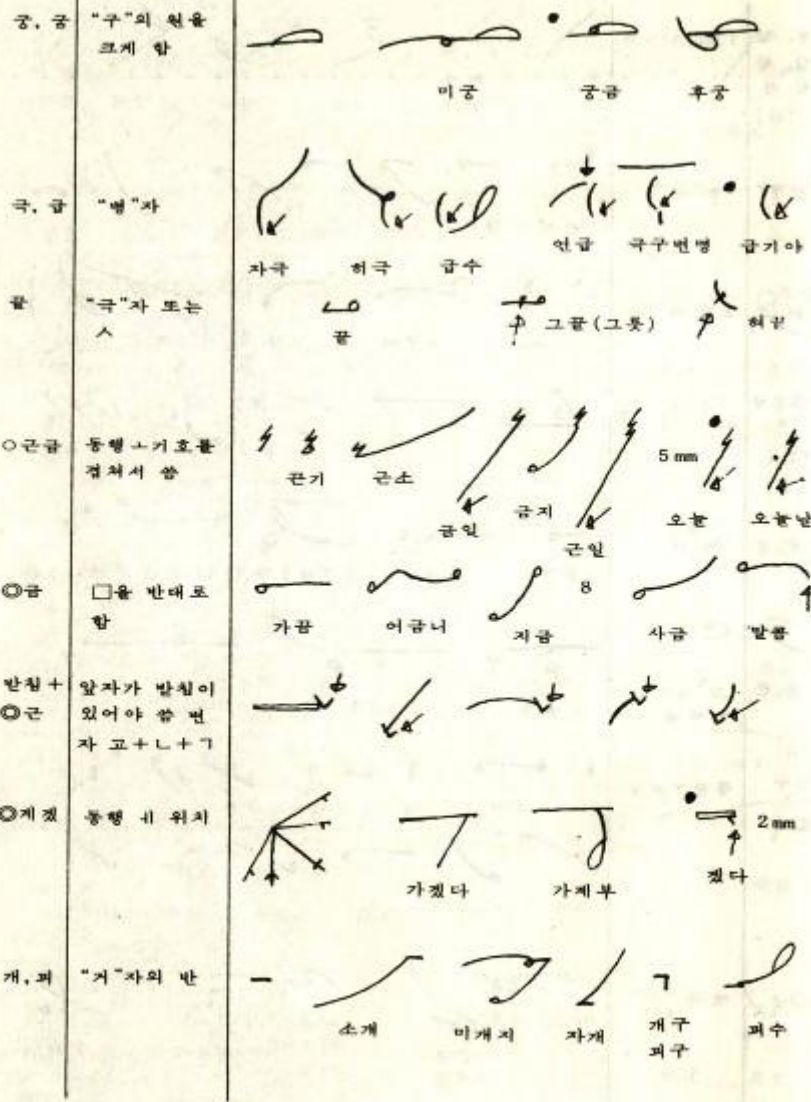 궁, 궁 "구"의 원을
크게 함
미궁 궁금 후궁
극, 급 "명"자
자극 허극 급수 언급 극구변명 급기야
끝 "극"자 또는
ㅅ
끝 그끝(그릇) 혀끝
○근금 동행 ㅗ기호를
겹쳐서 씀
5 mm
끈기 근소 금일 금지 근일 오늘 오늘날
◎금 □을 반대로
함
8
가끔 어금니 지금 사금 말콤
받침+ 앞자가 받침이
◎근 있어야 씀 변
자 고+ㄴ+ㄱ
◎게겠 동행 ㅔ 위치
2 mm
가겠다 가계부 겠다
개, 꾀 "거"자의 반
소개 미개지 자개 개구 꾀수
꾀구